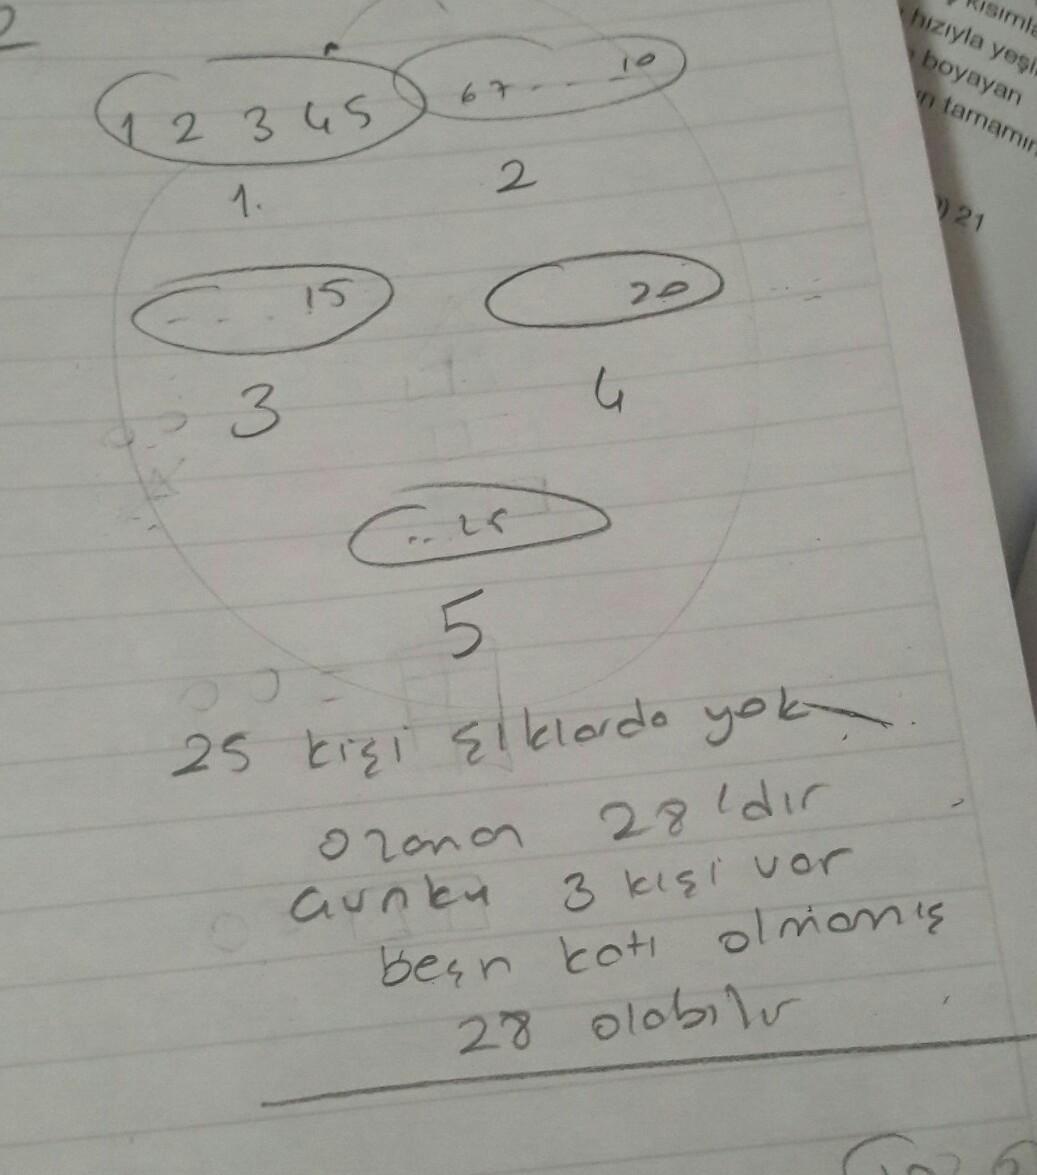 2
1 2 3 4 5
6 7 . . . . 10
1.
2
. . . . 15
20
3
4
.. 25
5
25 kişi şıklarda yok
ozanan 28'dır
çunku 3 kişi var
beşn katı olmamış
28 olabilir
kısımla
hızıyla yeşi
boyayan
n tamamın
) 21